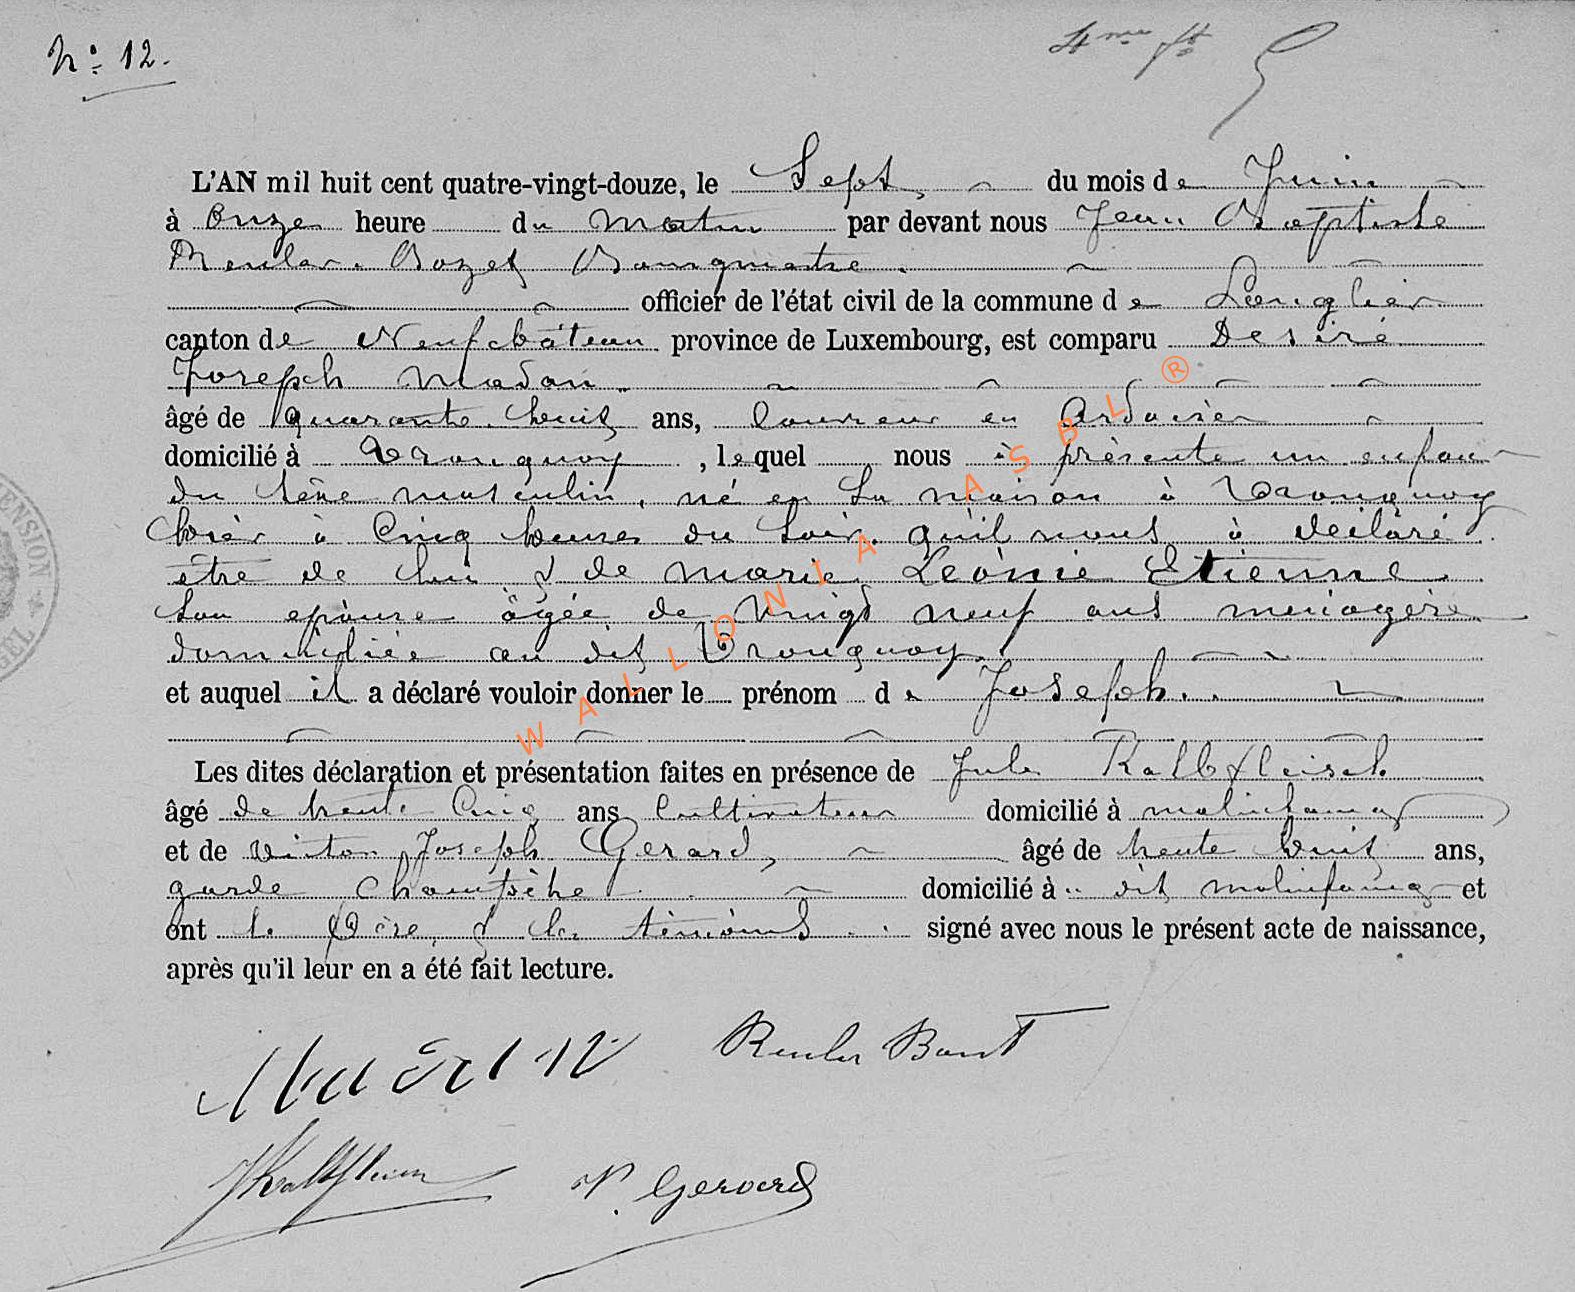 No 12.
4me ft
L'AN mil huit cent quatre-vingt-douze, le Sept du mois de Juin
à Onze heure du matin par devant nous Jean Baptiste
Reuler Bozet Bourgmestre.
officier de l'état civil de la commune de Longlier
canton de Neufchâteau province de Luxembourg, est comparu Désiré
Joseph Madan
âgé de quarante huit ans, Couvreur en Ardoisier
domicilié à Tronquoy, lequel nous à présenté un enfant
du sèxe masculin, né en sa maison à Tronquoy
hièr à Cinq heures du Soir. qu'il nous à déclaré
être de lui & de marie Léonie Etienne
son epouse âgée de Vingt neuf ans menagère
domiciliée au dit Tronquoy.
et auquel il a déclaré vouloir donner le prénom de Joseph.
Les dites déclaration et présentation faites en présence de Jules Kalbfleisch
âgé de trente Cinq ans Cultivateur domicilié à molinfaing
et de Victor Joseph Gerard, âgé de trente huit ans,
garde Champètre domicilié à u dit molinfaing et
ont le Père, & les témoins signé avec nous le présent acte de naissance,
après qu'il leur en a été fait lecture.
Reuler Bozet
JKalbfleisch V. Gerard
ENSION
GEL
WALLONIA ASBL ®